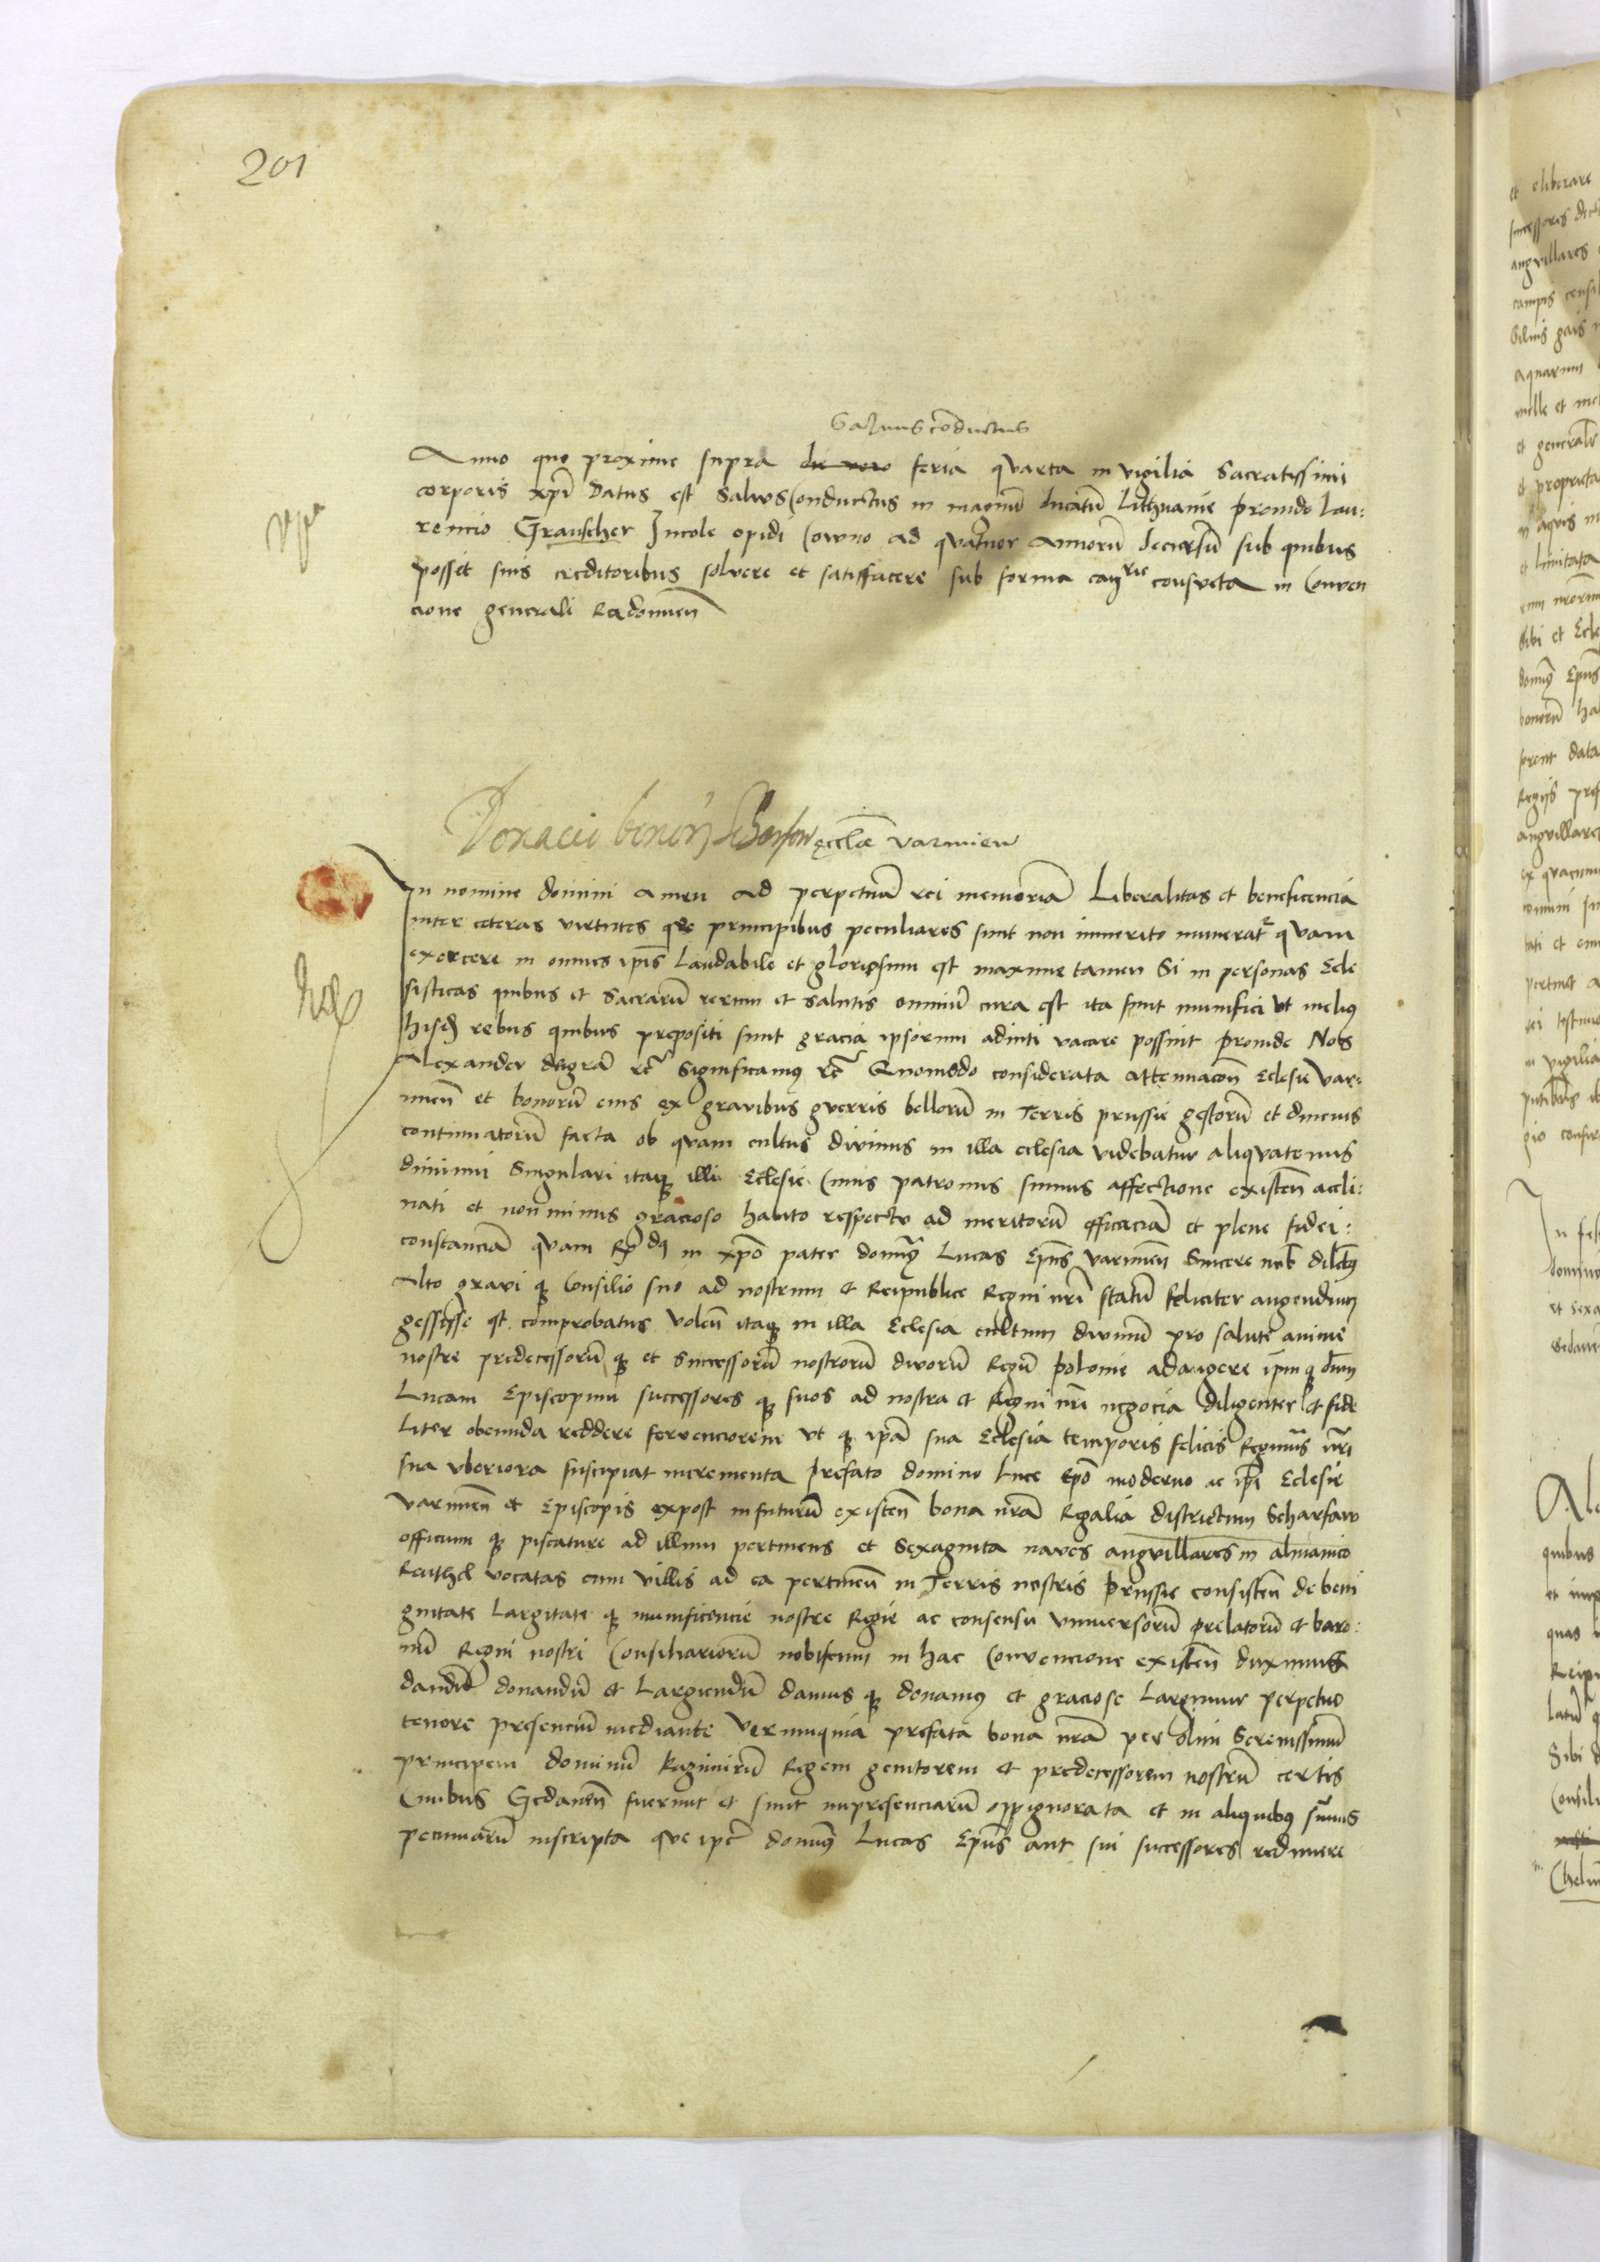 201
Salvus conductus
Anno quo proxime supra die vero feria quarta in vigilia Sacratissimi
corporis xpi Datus est Salvus Conductus in magnu ducatu Lithuanie provido Lau:
rencio Grauscher Incole opidi Cowno ad quatuor Annoru decursu sub quibus
posset suis creditoribus solvere et satisfacere sub forma canrie consueta in Conven
cione generali Radomien
Donacio bonor Scharfow ecclie Varmien
In nomine domini Amen Ad perpetua rei memoria Liberalitas et beneficencia
inter ceteras virtutes que principibus peculiares sunt non immerito numerat quam
exercere in omnes ipis Laudabile et gloriosum est maxime tamen Si in personas Ecle
siasticas quibus et Sacraru rerum et salutis omniu cura est ita sunt munifici ut melius
hisd rebus quibus prepositi sunt gracia ipsorum adiuti vacare possint Proinde Nos
Alexander dei gra rc Significamus rc Quomodo considerata attenuacon Eclesie Var:
mien et bonoru eius ex gravibus guerris belloru in Terris prussie gestoru et diucius
continuatoru facta ob quam cultus divinus in illa eclesia videbatur aliquatenus
diminui Singulari itaque illi Eclesie Cuius patronus sumus affectione existen accli:
nati et non minus gracioso habito respectu ad meritoru efficacia et plene fidei:
constancia quam Rd in xpo pater domin Lucas Epus Varmien Sincere nob dilcus
Alto gravi que Consilio suo ad nostrum et Reipublice Regni nri statu feliciter augendum
gessisse est comprobatus Volen itaque in illa Eclesia cultum divinu pro salute anime
nostre predecessoru que et Successoru nostroru divoru Regu Polonie adaugere ipmque dnm
Lucam Episcopum successores que suos ad nostra et Regni nri negocia diligenter et fide
liter obeunda reddere fervenciorem ut que ipa sua Eclesia temporis felicis Regiminis nri
sua uberiora suscipiat incrementa Prefato domino Luce Epo moderno ac ipi Eclesie
Varmien et Episcopis expost in futuru existen bona nra Regalia districtum Scharfaw
officium que piscature ad illum pertinens et Sexaginta naves anguillares in almanico
Keuthel vocatas cum villis ad ea pertinen in Terris nostris Prussie consisten de beni
gnitate Largitate que munificencie nostre Regie ac consensu universoru prelatoru et baro:
nu Regni nostri Consiliarioru nobiscum in hac Convencione existen duximus
dandu donandu et Largiendu damus que donamus et graciose Largimur perpetuo
tenore presenciu mediante Verumquia prefata bona nra per olim Serenissimu
principem dominu Kazimiru Regem genitorem et predecessorem nostru certis
Civibus Gedanen fuerunt et sunt inpresenciaru oppignorata et in aliquibus sumis
pecuniaru inscripta que ipe domin Lucas Epus aut sui successores redimere